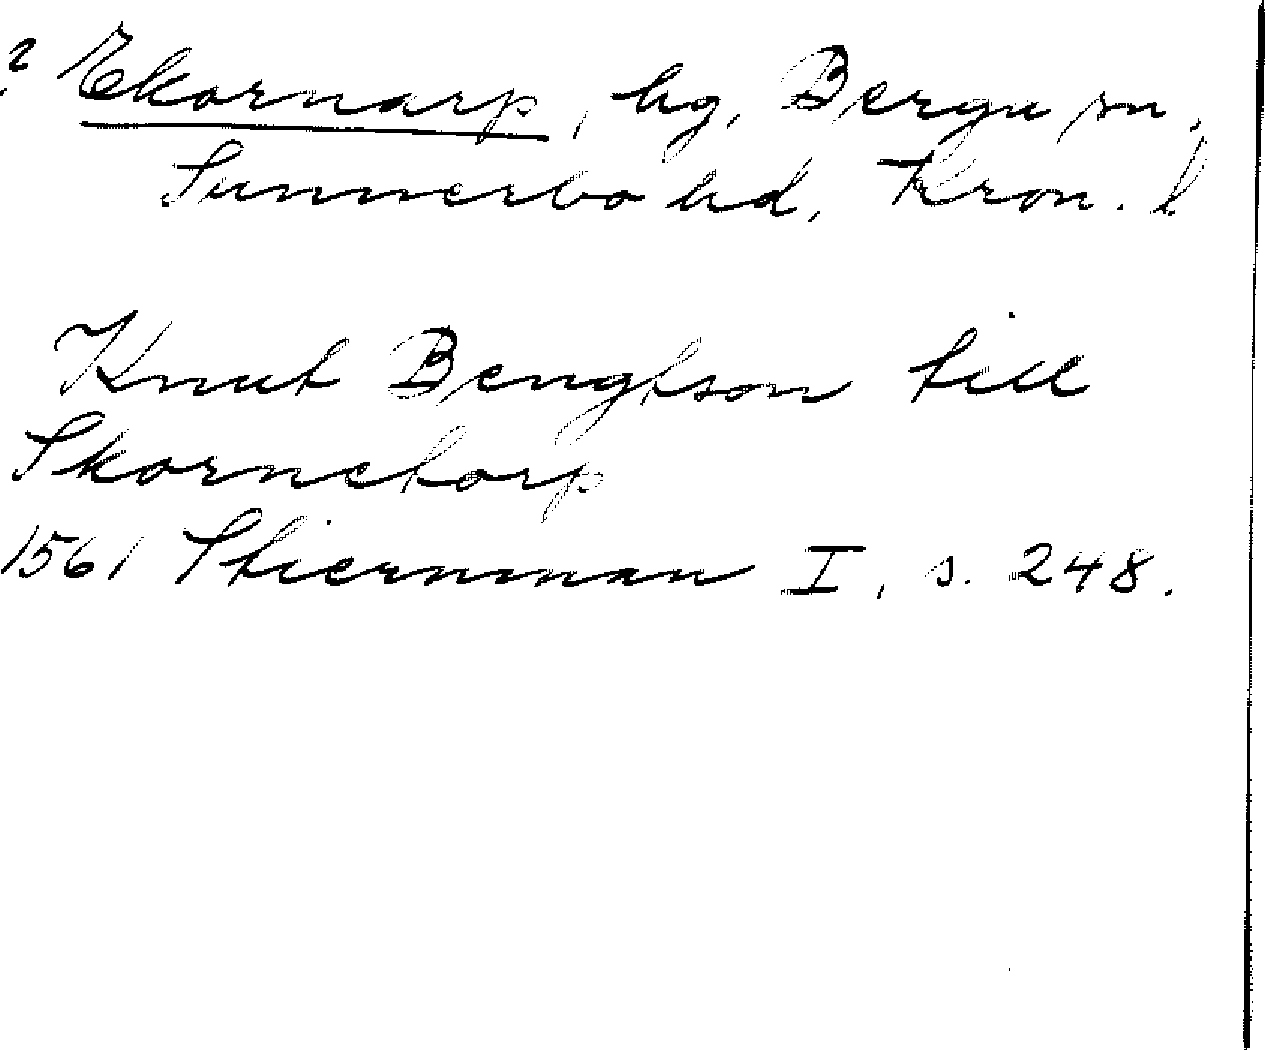 ? Ekornarp, hg, Berga sn,
Sunnerbo hd, Kron. l
Knut Bengtson till
Skornetorp
1561 Stiernman I, s. 248.